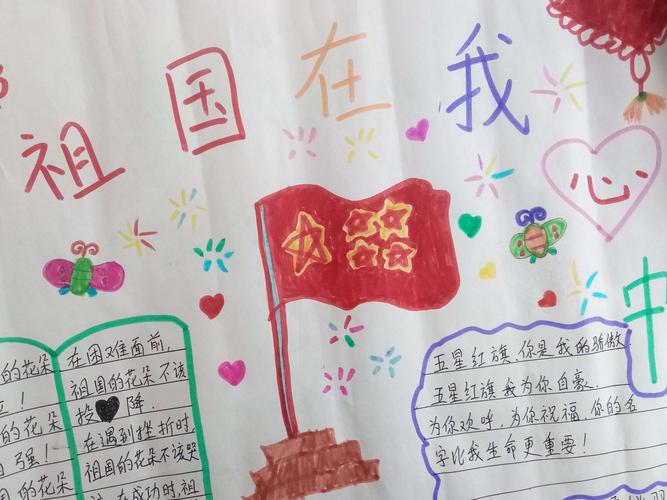 祖国在我心中
的花朵
！
的花朵
强！
的花朵
在困难面前,
祖国的花朵不该
投降.
在遇到挫折时,
祖国的花朵不该哭
在成功时,祖
五星红旗,你是我的骄傲.
五星红旗我为你自豪.
为你欢呼,为你祝福,你的名
字比我生命更重要！